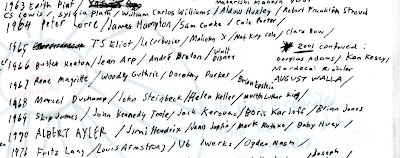 1963 Edith Piaf
CS Lewis / Sylvia Plath / William Carlos Williams / Aldous Huxley / Robert Franklin Stroud
1964 Peter Lorre / James Hampton / Sam Cooke / Cole Porter
1965 TS Eliot / Le Corbusier / Malcolm X / Nat King Cole / Clara Bow
1966 Buster Keaton / Jean Arp / André Breton / Walt Disney
* 2001 continued:
Douglas Adams / Ken Kesey /
Mordecai Richler
AUGUST WALLA /
1967 René Magritte / Woody Guthrie / Dorothy Parker / Brian Epstein
1968 Marcel Duchamp / John Steinbeck / Helen Keller / Martin Luther King
1969 Skip James / John Kennedy Toole / Jack Kerouac / Boris Karloff / Brian Jones
1970 ALBERT AYLER / Jimi Hendrix / Janis Joplin / Mark Rothko / Baby Huey /
1971 Fritz Lang / Louis Armstrong / Ub Iwerks / Ogden Nash /
Joseph